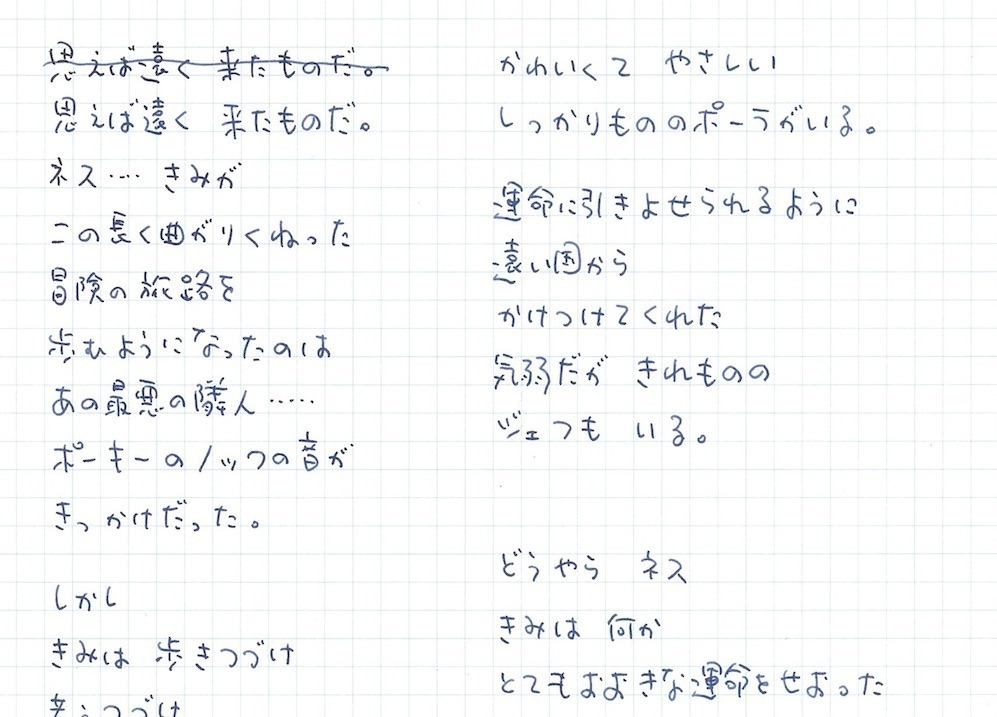 思えば遠く 来たものだ。
思えば遠く 来たものだ。
ネス‥‥ きみが
この長く曲がりくねった
冒険の旅路を
歩むようになったのは
あの最悪の隣人‥‥‥
ポーキーのノックの音が
きっかけだった。
しかし
きみは 歩きつづけ
つづけ
かわいくて やさしい
しっかりもののポーラがいる。
運命に引きよせられるように
遠い国から
かけつけてくれた
気弱だが きれものの
ジェフも いる。
どうやら ネス
きみは 何か
とてもおおきな運命をせおった